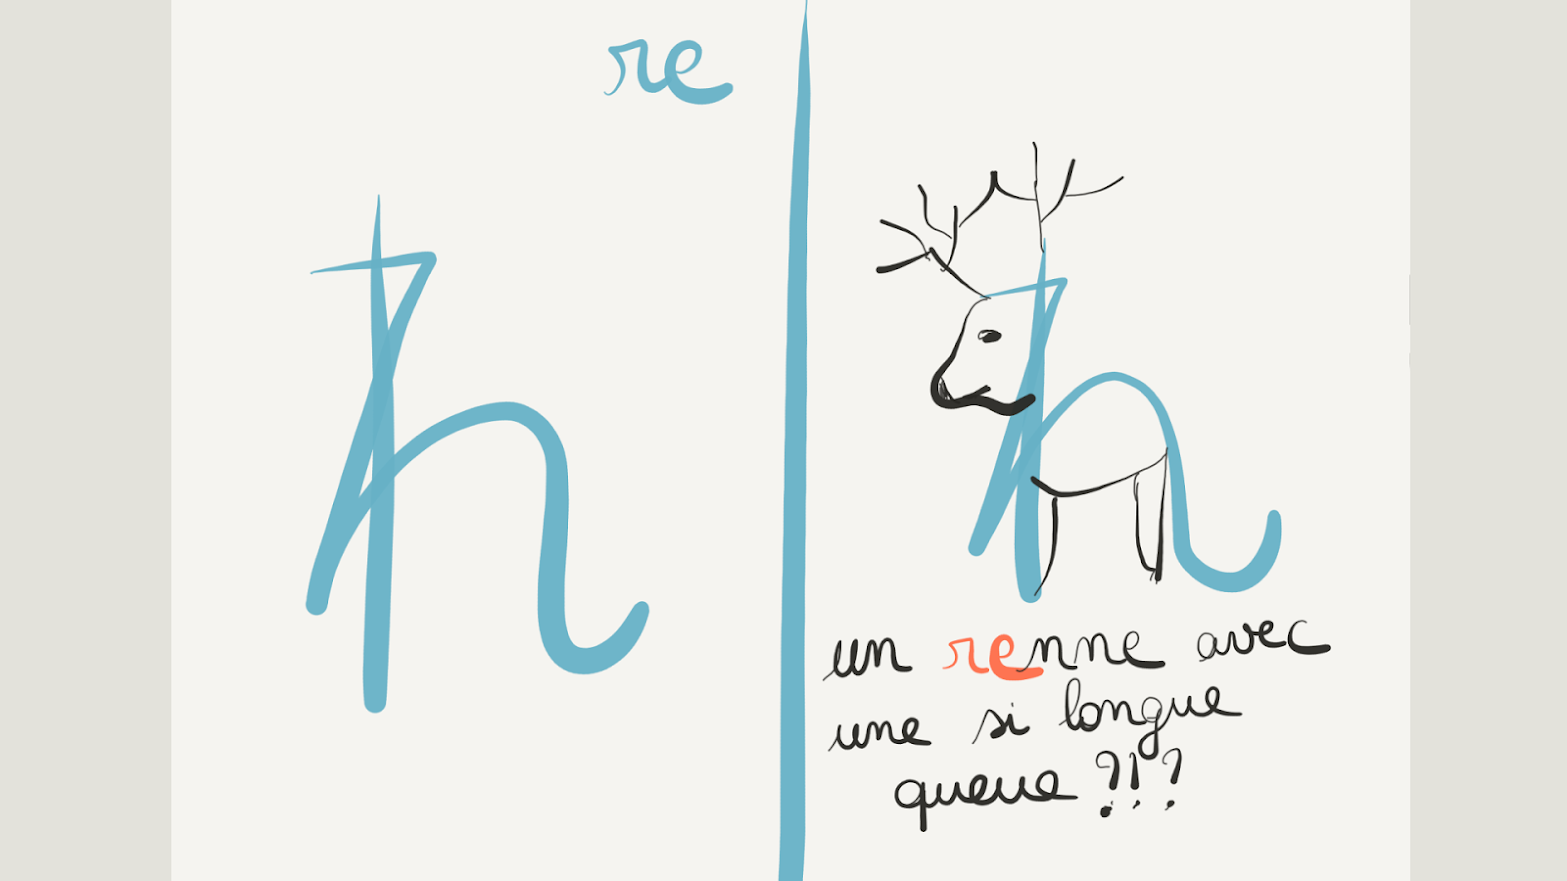 re
れ
un renne avec
une si longue
queue ?!?